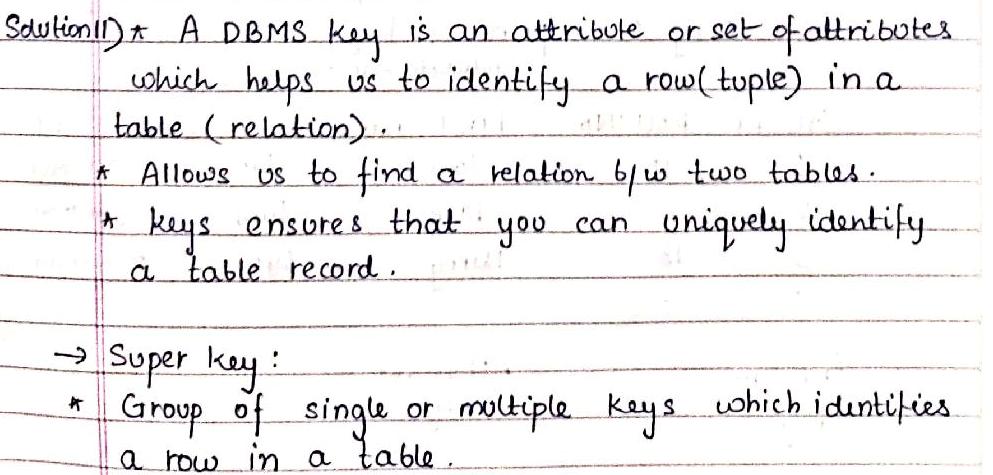 Solution 11) * A DBMS key is an attribute or set of attributes
which helps us to identify a row(tuple) in a
table (relation).
* Allows us to find a relation b/w two tables.
* keys ensures that you can uniquely identify
a table record.
→ Super key :
* Group of single or multiple keys which identifies
a row in a table.